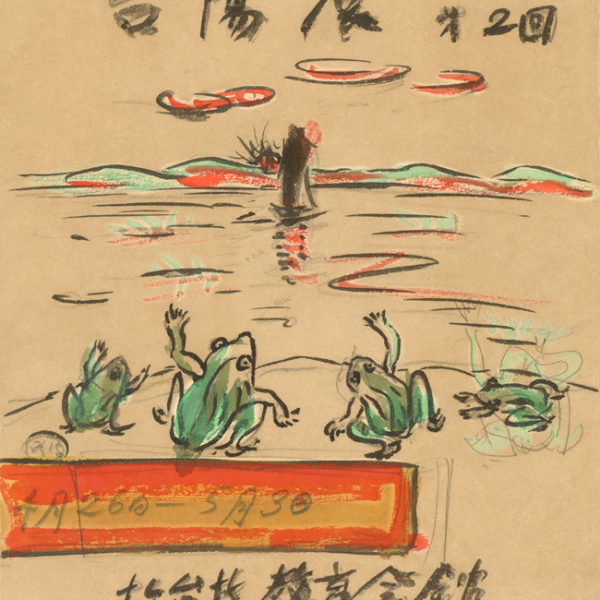 台陽展 第2回
4月26日－5月3日
台北市 教育会館